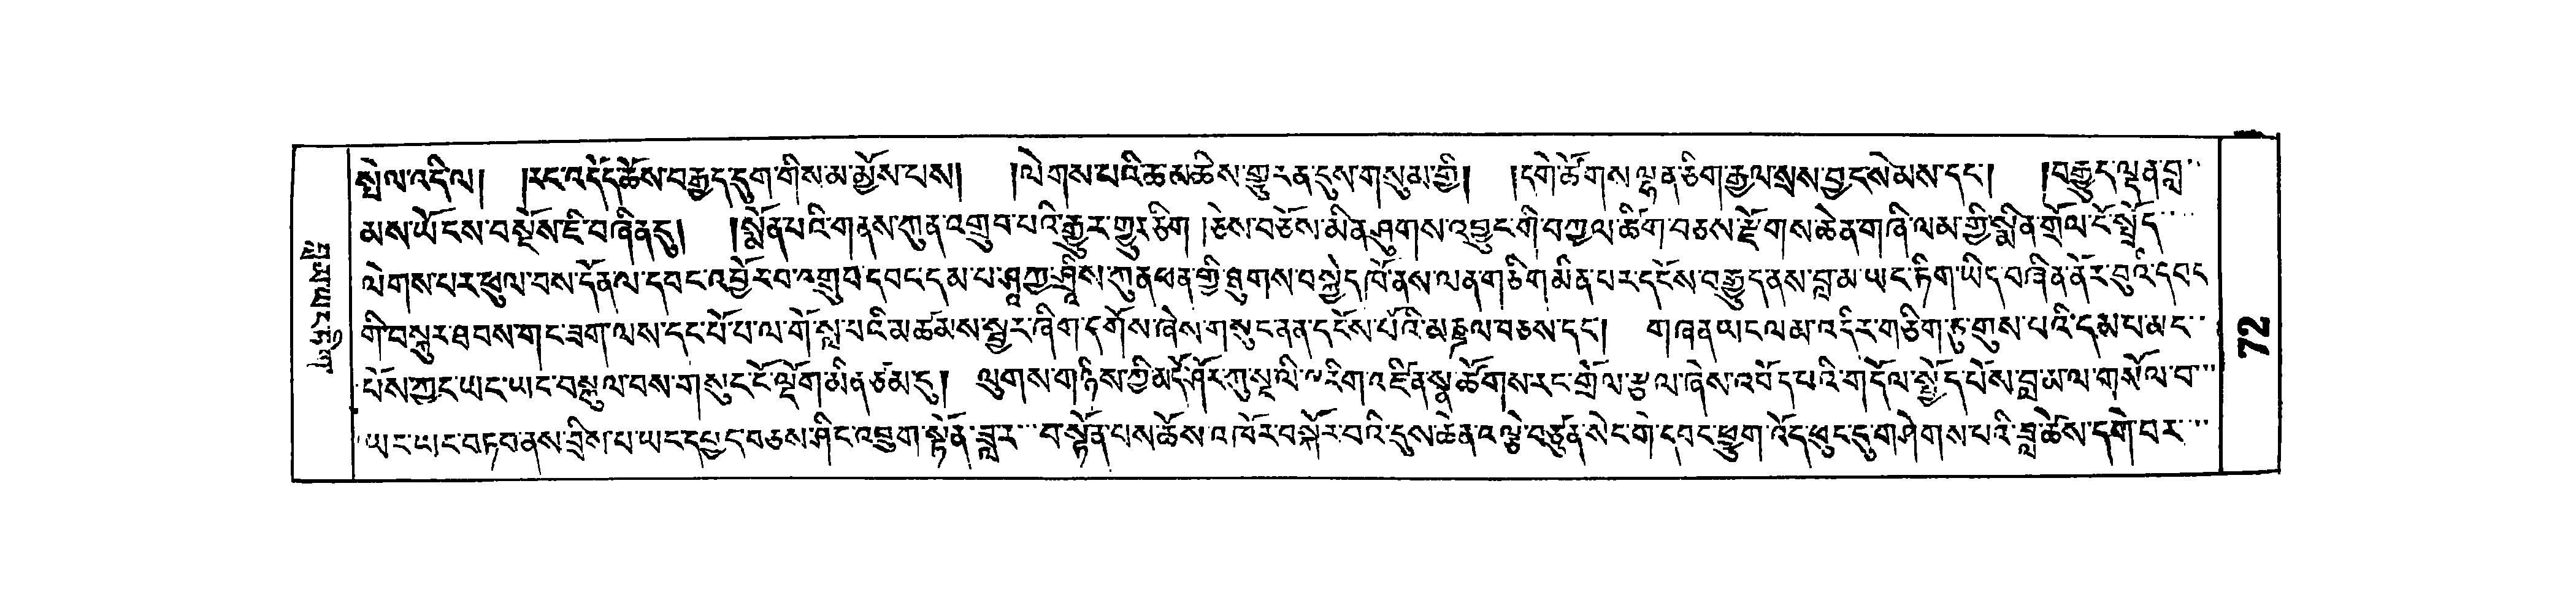 སྤེལ་འདི་ལ། །རང་འདོད་ཆོས་བརྒྱད་དུག་གིས་མ་མྱོས་པས། །ལེགས་པའི་ཆ་མཆིས་གྱུར་ན་དུས་གསུམ་གྱི། །དགེ་ཚོགས་ལྷན་ཅིག་རྒྱལ་སྲས་བྱང་སེམས་དང་། །བརྒྱུད་ལྡན་བླ་
མས་ཡོངས་བསྔོས་ཇི་བཞིན་དུ། །སྨོན་པའི་གནས་ཀུན་འགྲུབ་པའི་རྒྱུར་གྱུར་ཅིག །ཅེས་བཅོས་མིན་ཤུགས་འབྱུང་གི་བཀྱལ་ཚིག་བཅས་རྫོགས་ཆེན་གཞི་ལམ་གྱི་སྨིན་གྲོལ་ངོ་སྤྲོད་
ལེགས་པར་ཕུལ་བས་དོན་ལ་དབང་འབྱོར་བ་འགྲུབ་དབང་དམ་པ་ཤཱཀྱ་ཤྲཱིས་ཀུན་ཕན་གྱི་ཐུགས་བསྐྱེད་ཁོ་ནས་ལན་གཅིག་མིན་པར་དངོས་བརྒྱུད་ནས་བླ་མ་ཡང་ཏིག་ཡིད་བཞིན་ནོར་བུའི་དབང་
གི་བསྐུར་ཐབས་གང་ཟག་ལས་དང་པོ་པ་ལ་གོ་སླ་བའི་མཚམས་སྦྱར་ཞིག་དགོས་ཞེས་གསུང་ནན་དངོས་པོའི་མཎྜལ་བཅས་དང་། གཞན་ཡང་ལམ་འདིར་གཅིག་ཏུ་གུས་པའི་དམ་པ་མང་
པོས་ཀྱང་ཡང་ཡང་བསྐུལ་བས་གསུང་ངོ་ལྡོག་མིན་ཙམ་དུ། ལུགས་གཉིས་ཀྱི་མདོ་ཤོར་ཀུ་སཱ་ལི་༧རིག་འཛིན་སྣ་ཚོགས་རང་གྲོལ་རྩལ་ཞེས་འབོད་པའི་གདོལ་སྤྱོད་པོས་བླ་མ་ལ་གསོལ་བ་
ཡང་ཡང་བཏབ་ནས་བྲིས་པ་ཡང་དཔྱད་བཅས་ཤིང་འབྲུག་སྟོན་ཟླར་བ་སྟོན་པས་ཆོས་འཁོར་བསྐོར་བའི་དུས་ཆེན་འལྕེ་བཙུན་སེང་གེ་དབང་ཕྱུག་འོད་ཕུང་དུ་གཤེགས་པའི་ཟླ་ཚེས་དགེ་བར་